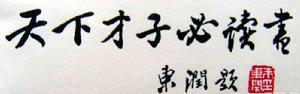 天下才子必读书
東潤題